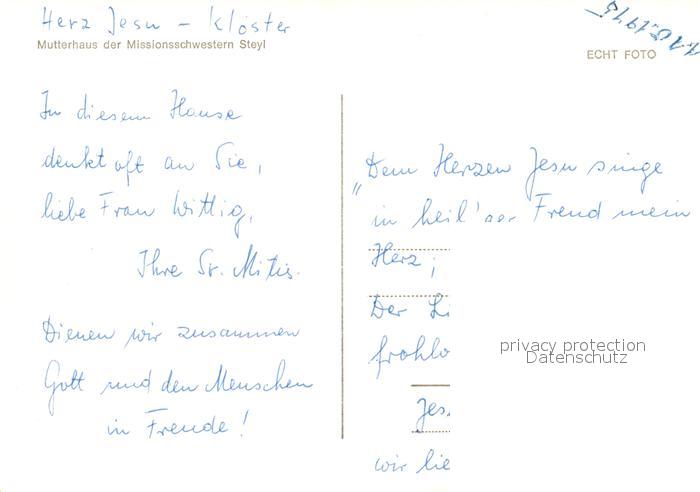 Herz Jesu - Kloster
Mutterhaus der Missionsschwestern Steyl
ECHT FOTO
In diesem Hause
denkt oft an Sie,
liebe Frau Wittig,
Ihre Sr. Mitis.
Dienen wir zusammen
Gott und den Menschen
in Freude!
„Dem Herzen Jesu singe
in heil'ger Freud mein
Herz;
Der Li
frohlo
Jes
wir lie
privacy protection
Datenschutz